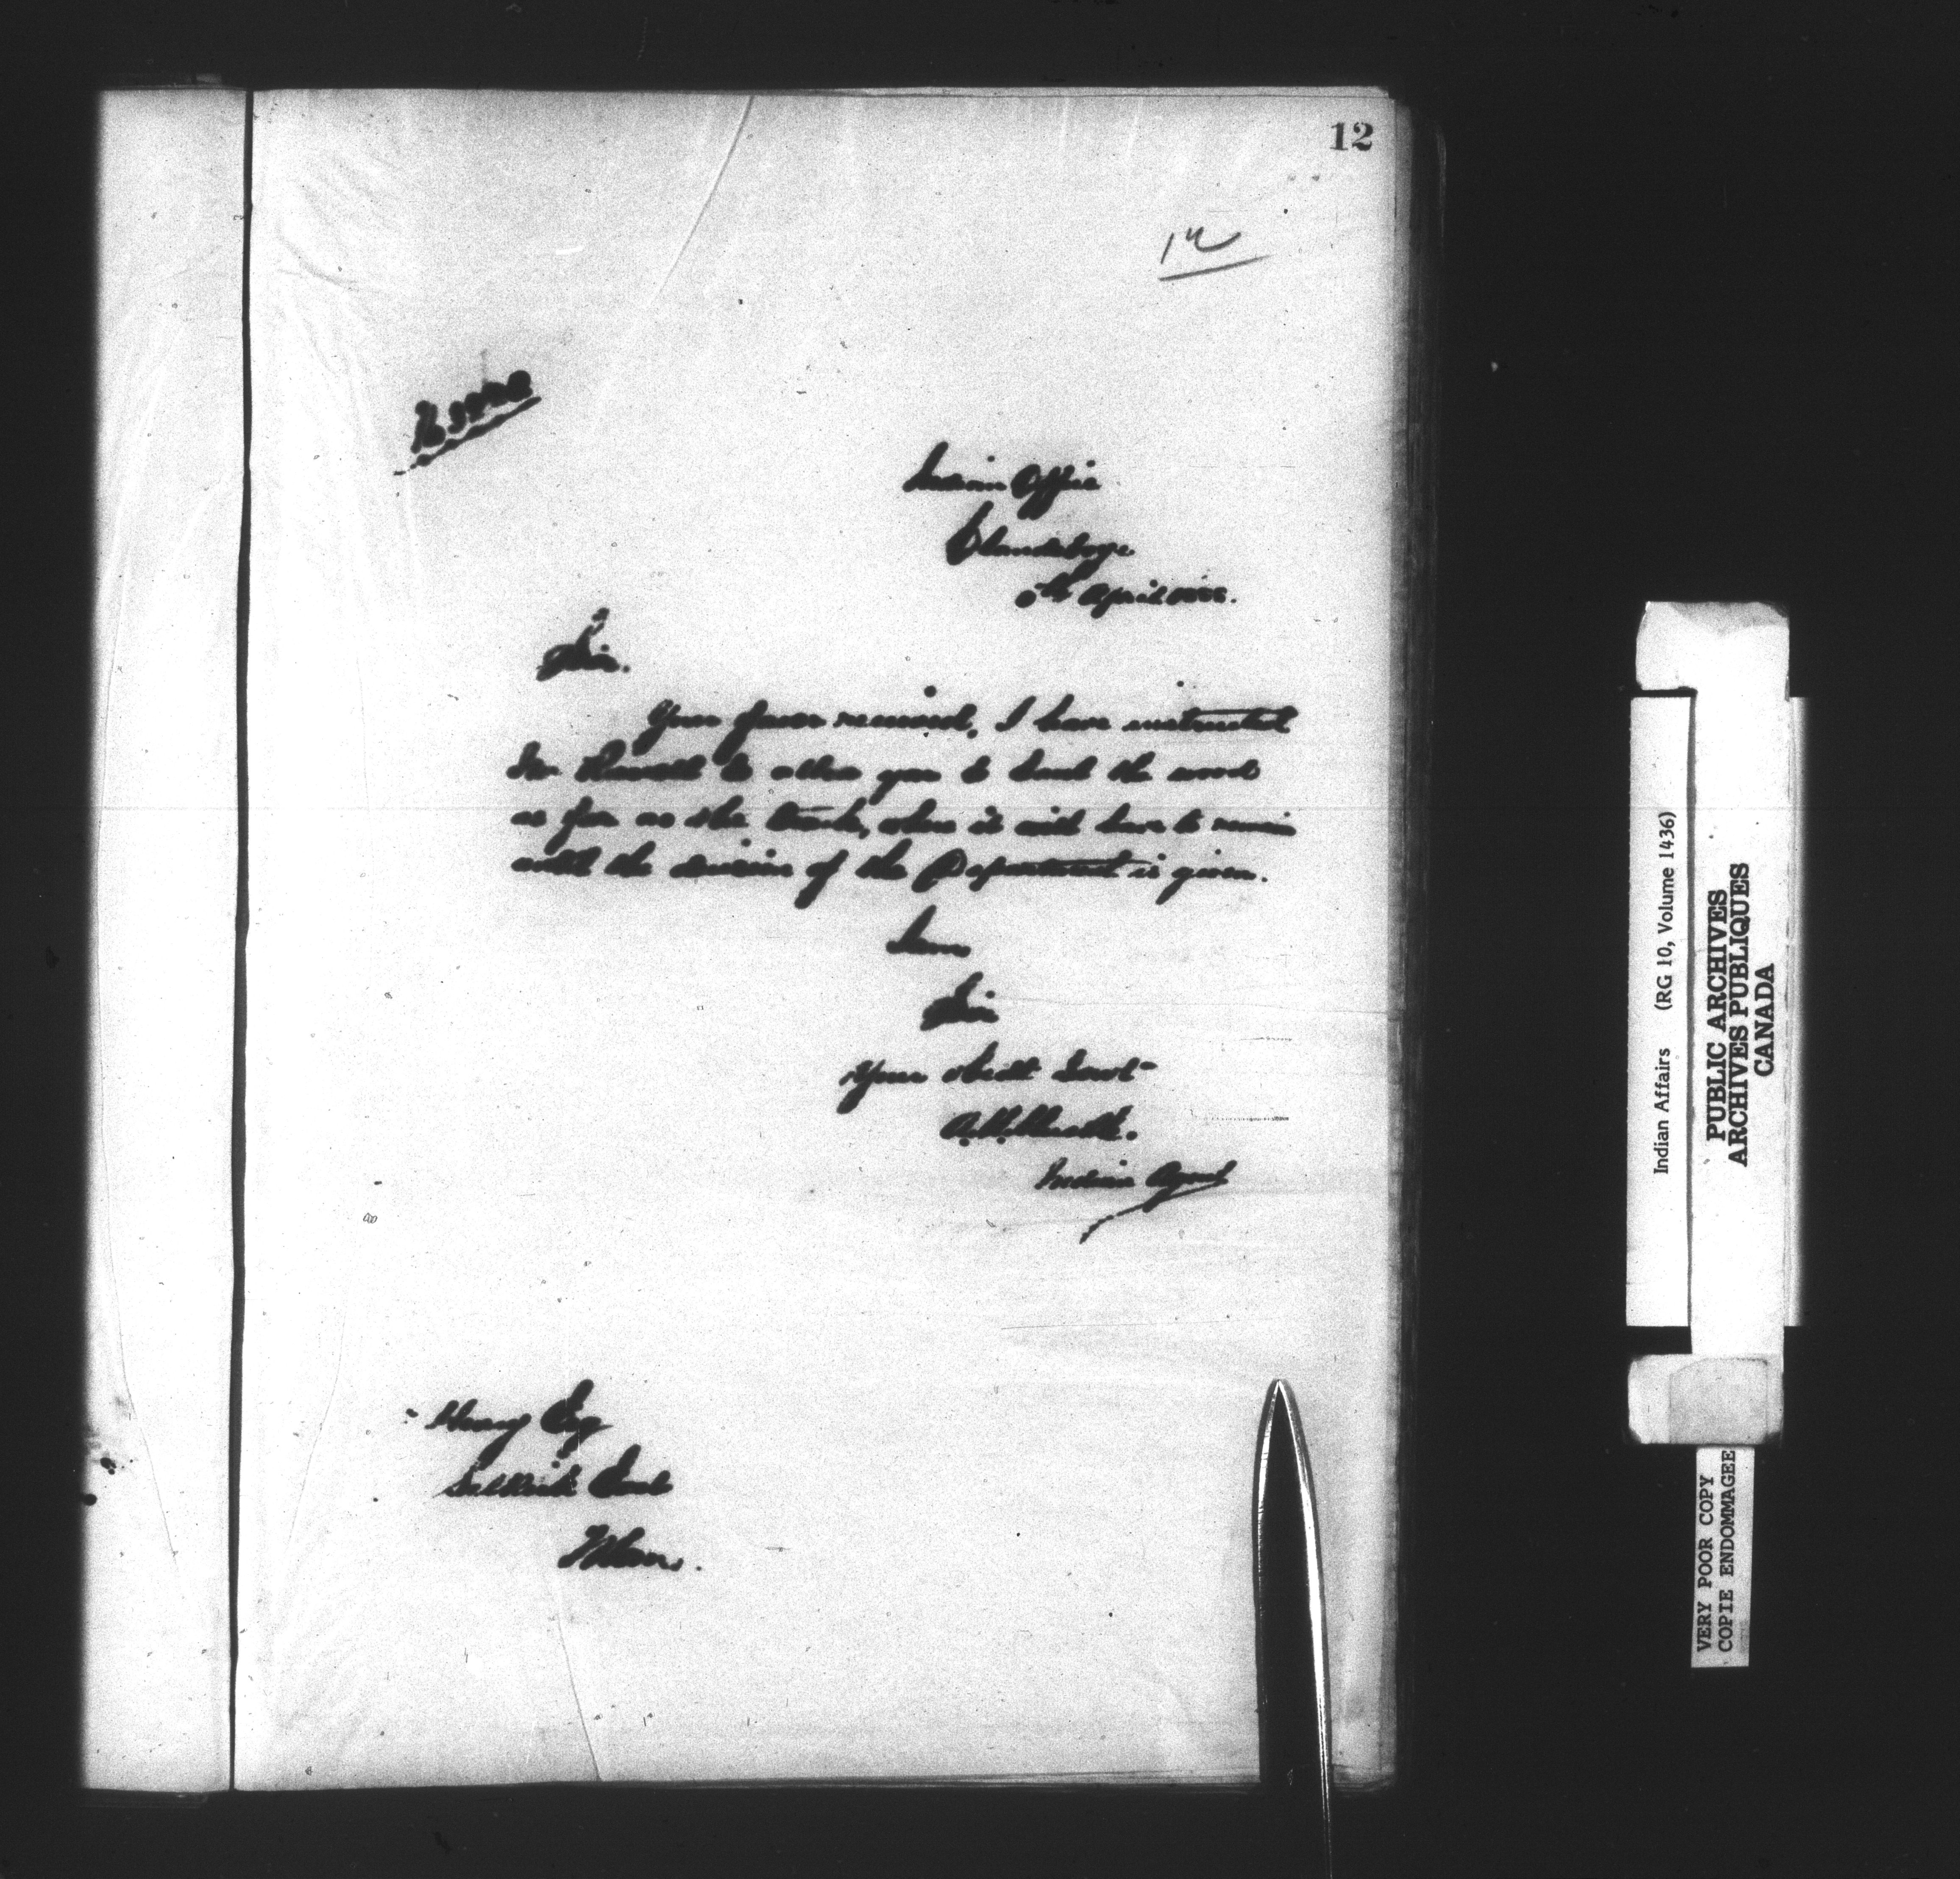 12
12
Indian Office
Clandeboye
April 1888.
Sir.
Your favor received, I have instructed
Mr to allow you to the wood
as far as the track, where it will have to remain
until the decision of the Department is given.
I am
Sir
Your obedt Servt
Indian Agent
Esq
Selkirk East
Indian Affairs (RG 10, Volume 1436)
PUBLIC ARCHIVES
ARCHIVES PUBLIQUES
CANADA
VERY POOR COPY
COPIE ENDOMMAGEE